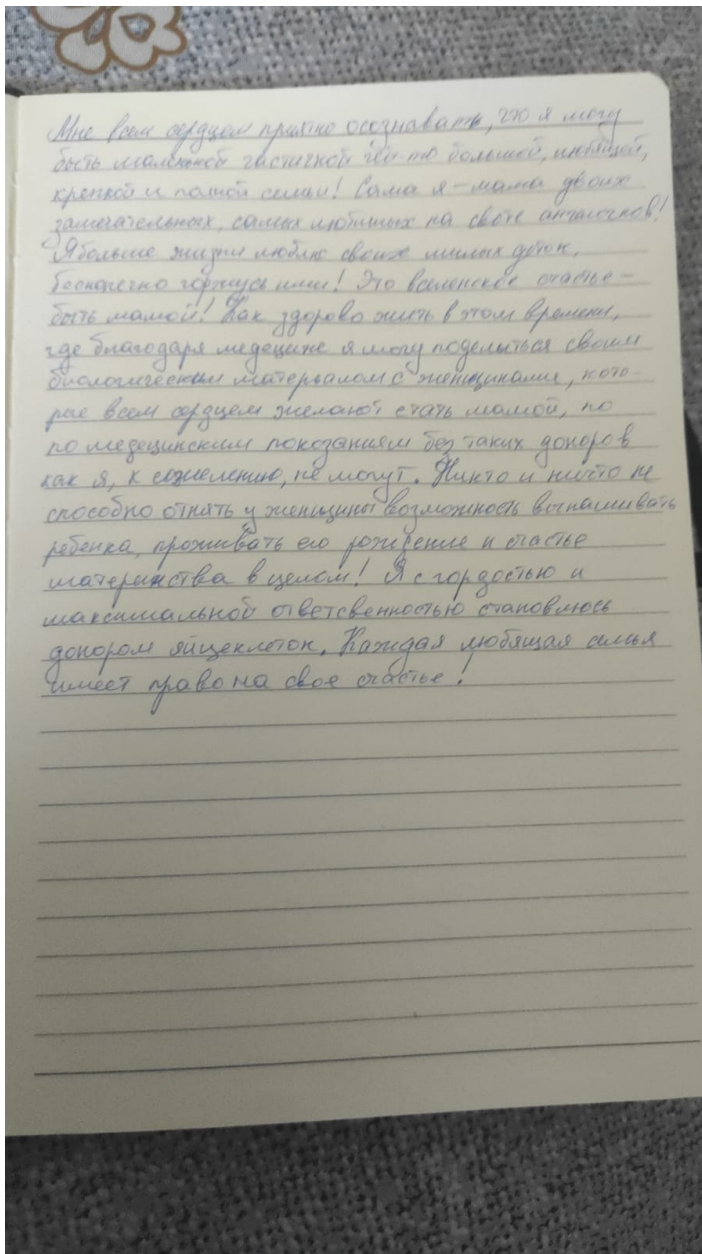 Мне всем сердцем приятно осознавать, что я могу
быть маленькой частичкой чей-то большой, любящей,
крепкой и полной семьи! Сама я - мама двоих
замечательных, самых любимых на свете ангелочков!
Я больше жизни люблю своих милых деток,
бесконечно горжусь ими! Это вселенское счастье -
быть мамой! Как здорово жить в этом времени,
где благодаря медецине я могу поделиться своим
биологическим материалом с женщинами, кото-
рые всем сердцем желают стать мамой, но
по медецинским показаниям без таких доноров
как я, к сожелению, не могут. Никто и ничто не
способно отнять у женщины возможность вынашивать
ребенка, проживать его рождение и счастье
материнства в целом! Я с гордостью и
максимальной ответсвенностью становлюсь
донором яйцеклеток. Каждая любящая семья
имеет право на свое счастье!